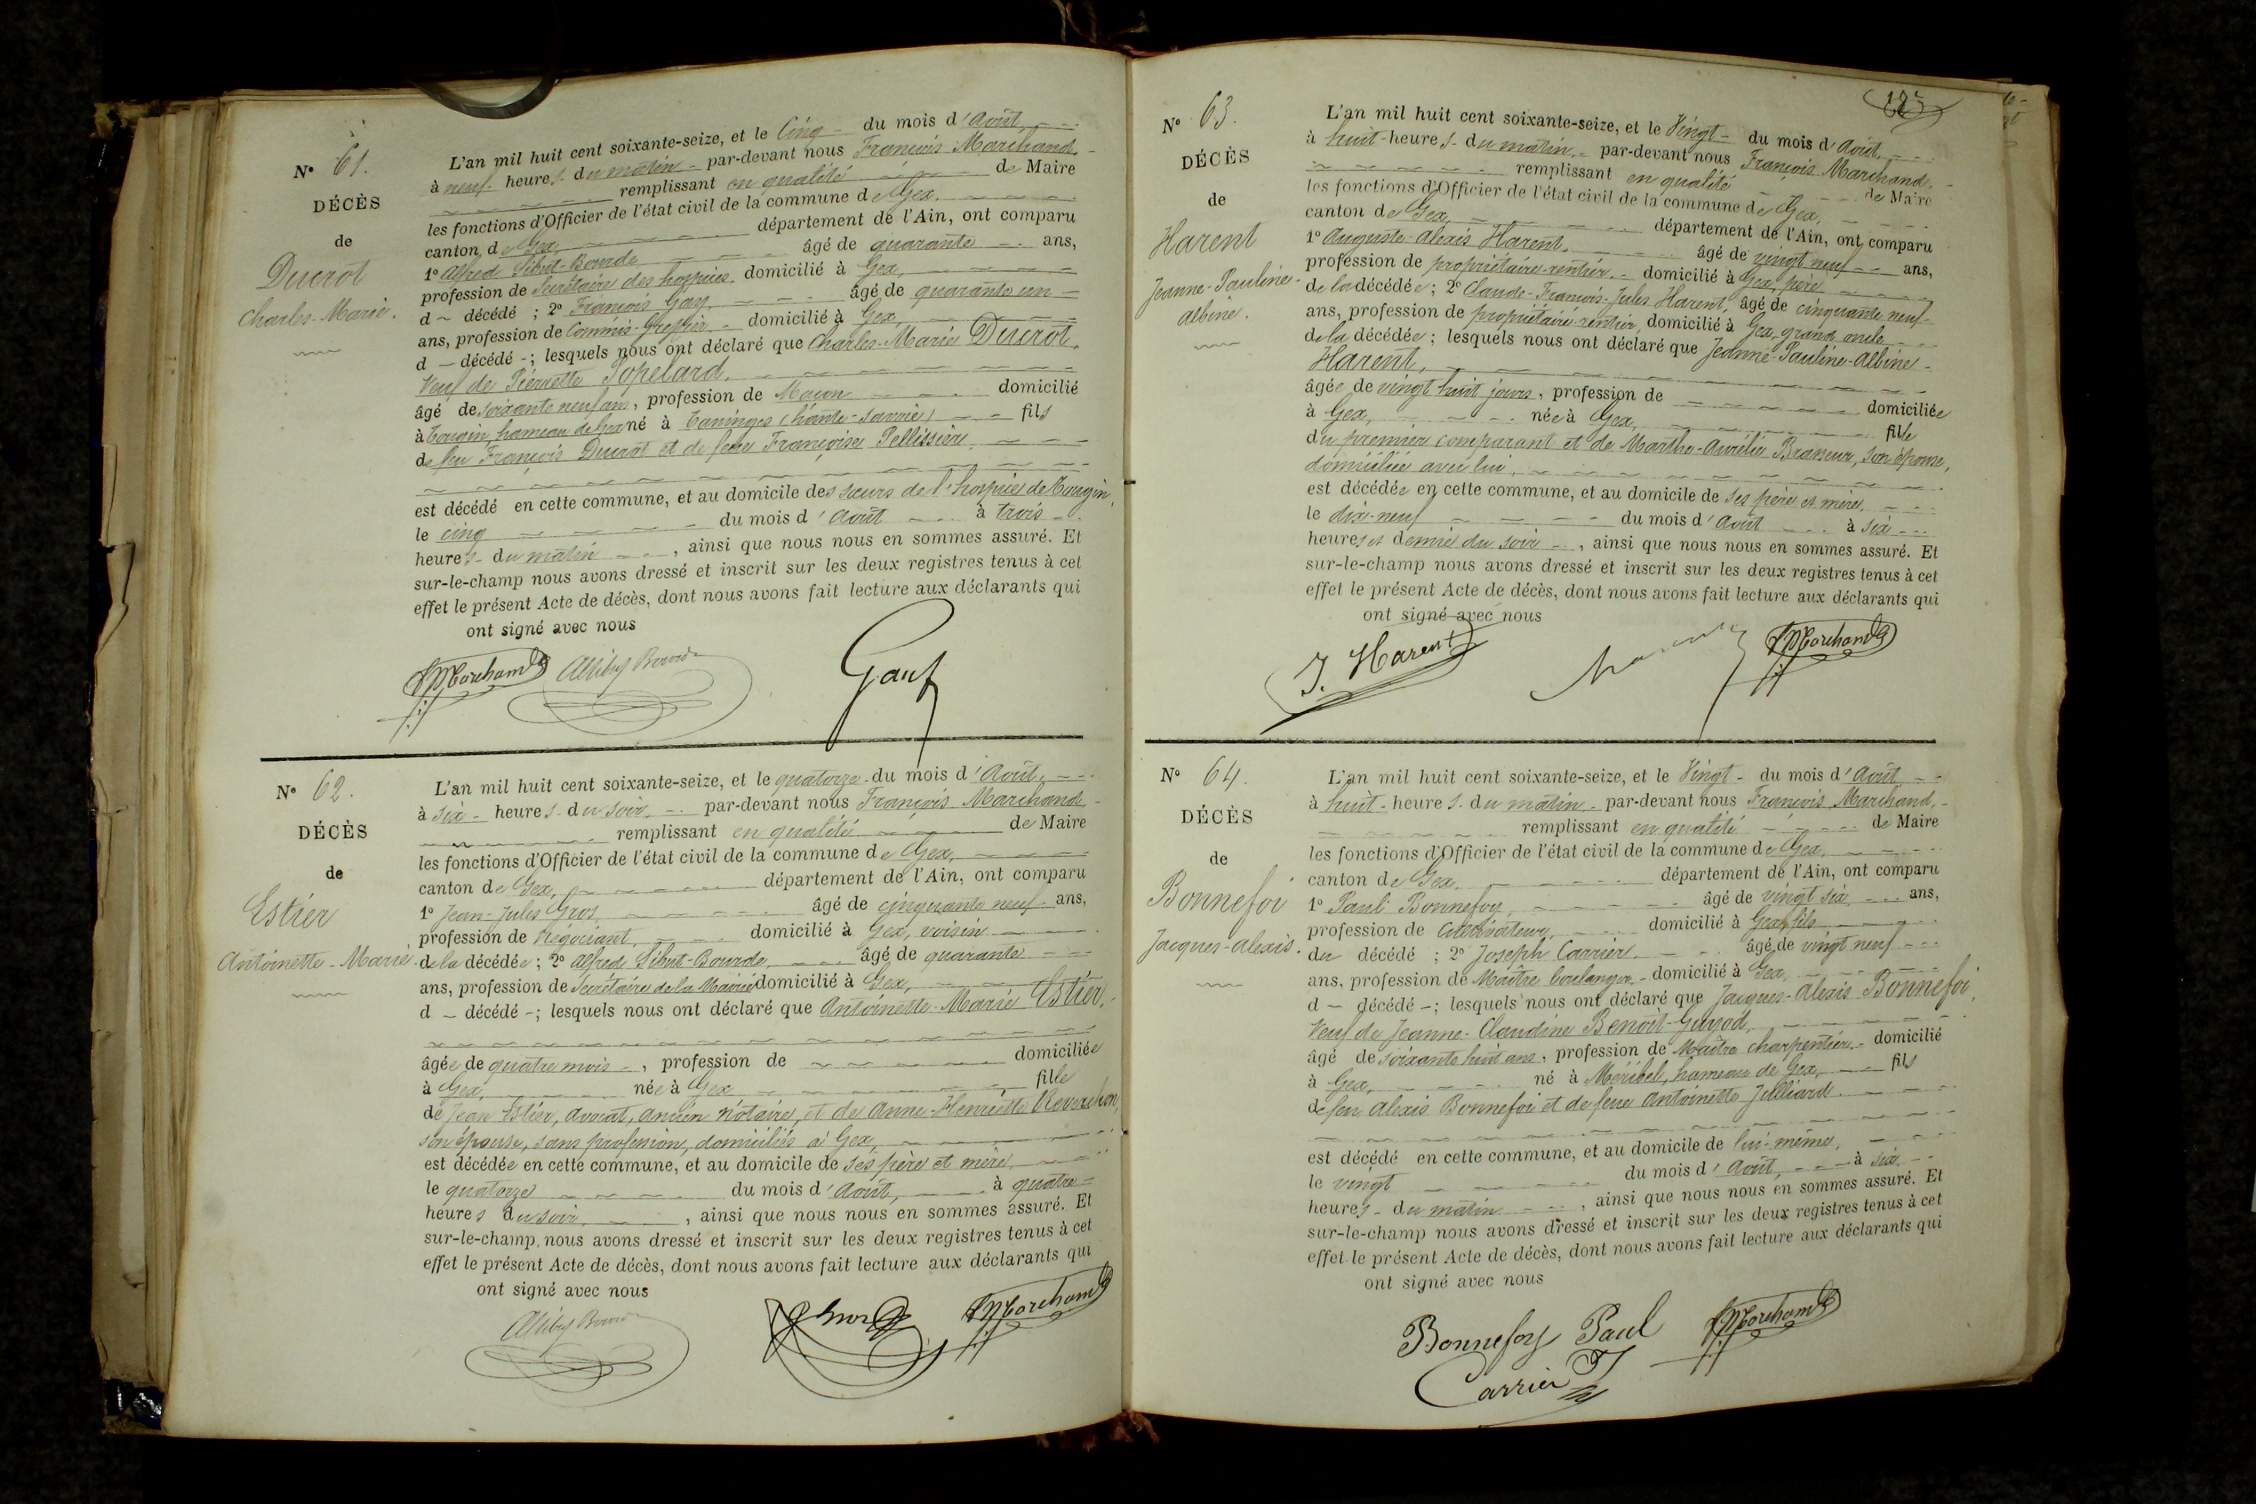 N° 61.
DÉCÈS
de
Ducrot
Charles-Marie.
L'an mil huit cent soixante-seize, et le Cinq du mois d'Août,
à neuf heures du matin par-devant nous François Marchand
remplissant en qualité de Maire
les fonctions d'Officier de l'état civil de la commune de Gex,
canton de Gex, département de l'Ain, ont comparu
1° Alfred Sibut-Bourde âgé de quarante ans,
profession de Secrétaire des hospices, domicilié à Gex,
d décédé ; 2° François Gay âgé de quarante un
ans, profession de Commis-Greffier domicilié à Gex,
d décédé ; lesquels nous ont déclaré que Charles-Marie Ducrot,
Veuf de Pierrette Popelard,
âgé de soixante neuf ans, profession de Maçon domicilié
à Tougin, hameau de Gex né à Taninges (haute-savoie) fils
de feu François Ducrot et de feue Françoise Pellissière
est décédé en cette commune, et au domicile des sœurs de l'hospice de Tougin,
le cinq du mois d'Août à trois
heures du matin, ainsi que nous nous en sommes assuré. Et
sur-le-champ nous avons dressé et inscrit sur les deux registres tenus à cet
effet le présent Acte de décès, dont nous avons fait lecture aux déclarants qui
ont signé avec nous
Marchand ASibut Bourde Gay
N° 62.
DÉCÈS
de
Estier
Antoinette-Marie.
L'an mil huit cent soixante-seize, et le quatorze du mois d'Août,
à six heures du soir, par-devant nous François Marchand
remplissant en qualité de Maire
les fonctions d'Officier de l'état civil de la commune de Gex,
canton de Gex, département de l'Ain, ont comparu
1° Jean-Jules Gros, âgé de cinquante neuf ans,
profession de Négociant, domicilié à Gex, voisin
de la décédée ; 2° Alfred Sibut-Bourde, âgé de quarante
ans, profession de Secrétaire de la Mairie domicilié à Gex,
d décédé ; lesquels nous ont déclaré que Antoinette-Marie Estier,
âgée de quatre mois, profession de domiciliée
à Gex, née à Gex fille
de Jean Estier, avocat, ancien notaire, et de Anne-Henriette Reverchon,
son épouse, sans profession, domiciliés à Gex,
est décédée en cette commune, et au domicile de ses père et mère
le quatorze du mois d'Août, à quatre
heures du soir, ainsi que nous nous en sommes assuré. Et
sur-le-champ, nous avons dressé et inscrit sur les deux registres tenus à cet
effet le présent Acte de décès, dont nous avons fait lecture aux déclarants qui
ont signé avec nous
ASibut Bourde Gros Marchand
N° 63.
DÉCÈS
de
Harent
Jeanne-Pauline-
Albine.
L'an mil huit cent soixante-seize, et le Vingt du mois d'Août,
à huit heures du matin, par-devant nous François Marchand,
remplissant en qualité de Maire
les fonctions d'Officier de l'état civil de la commune de Gex,
canton de Gex, département de l'Ain, ont comparu
1° Auguste-Alexis Harent, âgé de vingt neuf ans,
profession de propriétaire-rentier domicilié à Gex, père
de la décédée ; 2° Claude-François-Jules Harent, âgé de cinquante neuf
ans, profession de propriétaire-rentier, domicilié à Gex, grand oncle
de la décédée ; lesquels nous ont déclaré que Jeanne-Pauline-Albine
Harent,
âgée de vingt huit jours, profession de domiciliée
à Gex, née à Gex, fille
du premier comparant et de Marthe-Aurélie Brasseur, son épouse,
domiciliée avec lui,
est décédée en cette commune, et au domicile de ses père et mère,
le dix-neuf du mois d'Août à six
heures et demie du soir, ainsi que nous nous en sommes assuré. Et
sur-le-champ nous avons dressé et inscrit sur les deux registres tenus à cet
effet le présent Acte de décès, dont nous avons fait lecture aux déclarants qui
ont signé avec nous
J. Harent Marchand
N° 64.
DÉCÈS
de
Bonnefoi
Jacques-Alexis.
L'an mil huit cent soixante-seize, et le Vingt du mois d'Août
à huit heures du matin par-devant nous François Marchand,
remplissant en qualité de Maire
les fonctions d'Officier de l'état civil de la commune de Gex,
canton de Gex, département de l'Ain, ont comparu
1° Paul Bonnefoy, âgé de vingt six ans,
profession de Cultivateur, domicilié à Gex, fils
du décédé ; 2° Joseph Carrier âgé de vingt neuf
ans, profession de Maître boulanger domicilié à Gex,
d décédé ; lesquels nous ont déclaré que Jacques-Alexis Bonnefoi,
Veuf de Jeanne-Claudine Benoit-Guyod,
âgé de soixante huit ans, profession de Maître charpentier domicilié
à Gex, né à Moiribel, hameau de Gex, fils
de feu Alexis Bonnefoi et de feue Antoinette Julliard
est décédé en cette commune, et au domicile de lui-même,
le vingt du mois d'Août, à six
heures du matin, ainsi que nous nous en sommes assuré. Et
sur-le-champ nous avons dressé et inscrit sur les deux registres tenus à cet
effet le présent Acte de décès, dont nous avons fait lecture aux déclarants qui
ont signé avec nous
Bonnefoy Paul Marchand
Carrier J